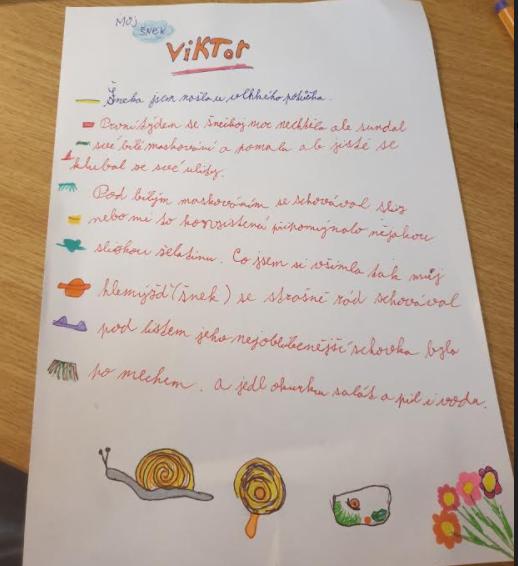 MŮJ
ŠNEK
ViKTor
Šneka jsem našla u vlhkého potůčka.
První týden se šnekoj moc nechtělo ale sundal
své bílé maskování a pomalu ale jistě se
klubal ze své ulity.
Pod bílým maskováním se schovával sliz
nebo mi to konzistencí připomýnalo nějakou
slizkou želatinu. Co jsem si všimla tak můj
hlemýžď (šnek) se strašně rád schovával
pod listem jeho nejoblíbenější schovka bylo
po mechem. a jedl okurku salát a pil i vodu.